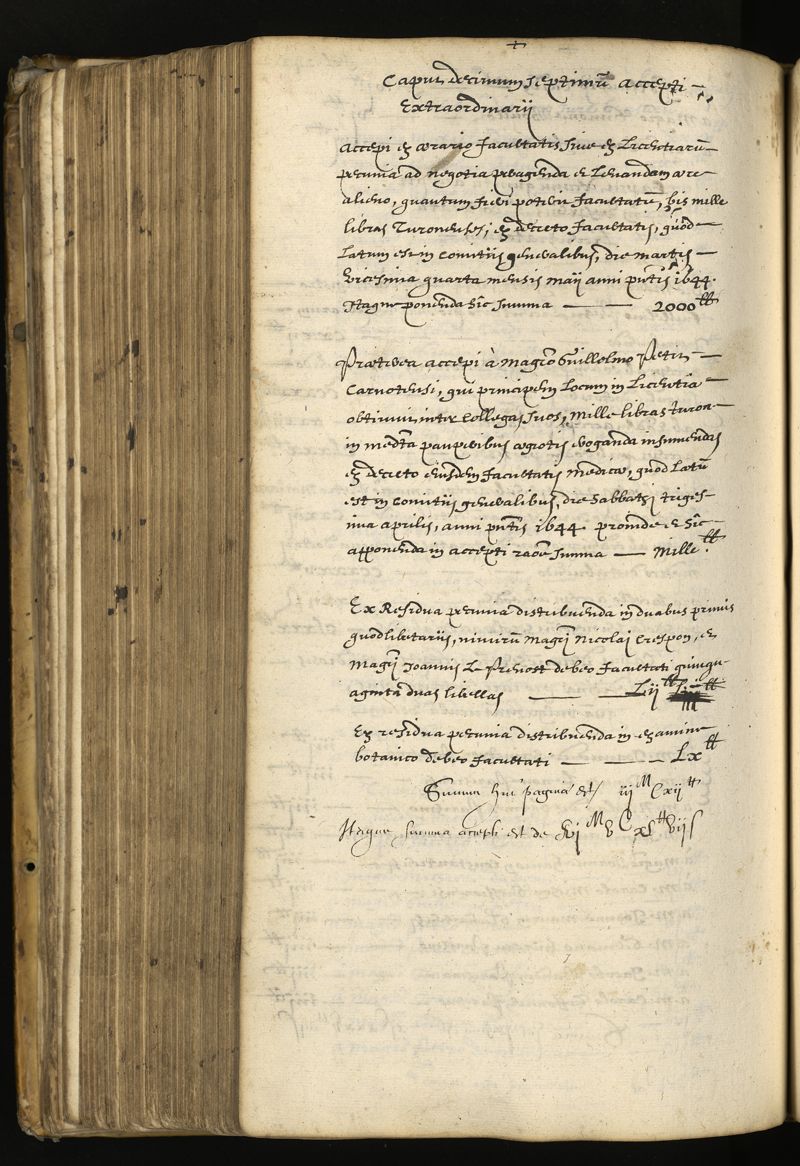 Caput decimum septimū accepti
Extraordinarij
Accepi ex ærario facultatis sive ex Licentiarū
pecunia ad negotia peragenda et Levandam ære
alieno, quantum fieri poterit facultatē, bis mille
libras Turonenses, ex decreto facultatis, quod
Latum est in comitiis generalibus, die martis
Vicesima quarta mensis maij anni pn̄tis 1644.
Itaque ponenda hîc summa 2000tt
Præterea accepi à magrō Guillelmo Petit
Carnotensi, qui principem Locum in Licentia
obtinuit inter Collegas suos, mille libras turon
in pauperibus ægrotis eroganda insumendas
ex decreto eiusdem facultatis medicæ, quod Latū
est in comitiis generalibus, die Sabbathi triges-
ima aprilis, anni pn̄tis 1644 proinde et hîc
apponenda in accepti raōne summa Mille tt.
Ex Residua pecunia distribuenda in duabus primis
quodlibetariis, nimirū magrī Nicolai Crespon, et
Magrī Joannis Le Prevost debeo facultati quinqu-
aginta duas libellas Lijtt
Ex residua pecunia distribuenda in examine
botanico debeo facultati Lxtt
Summa huiꝰ paginæ est iijM Cxijtt
Itaque summa accepti est de xvjM vC xLtt vijs